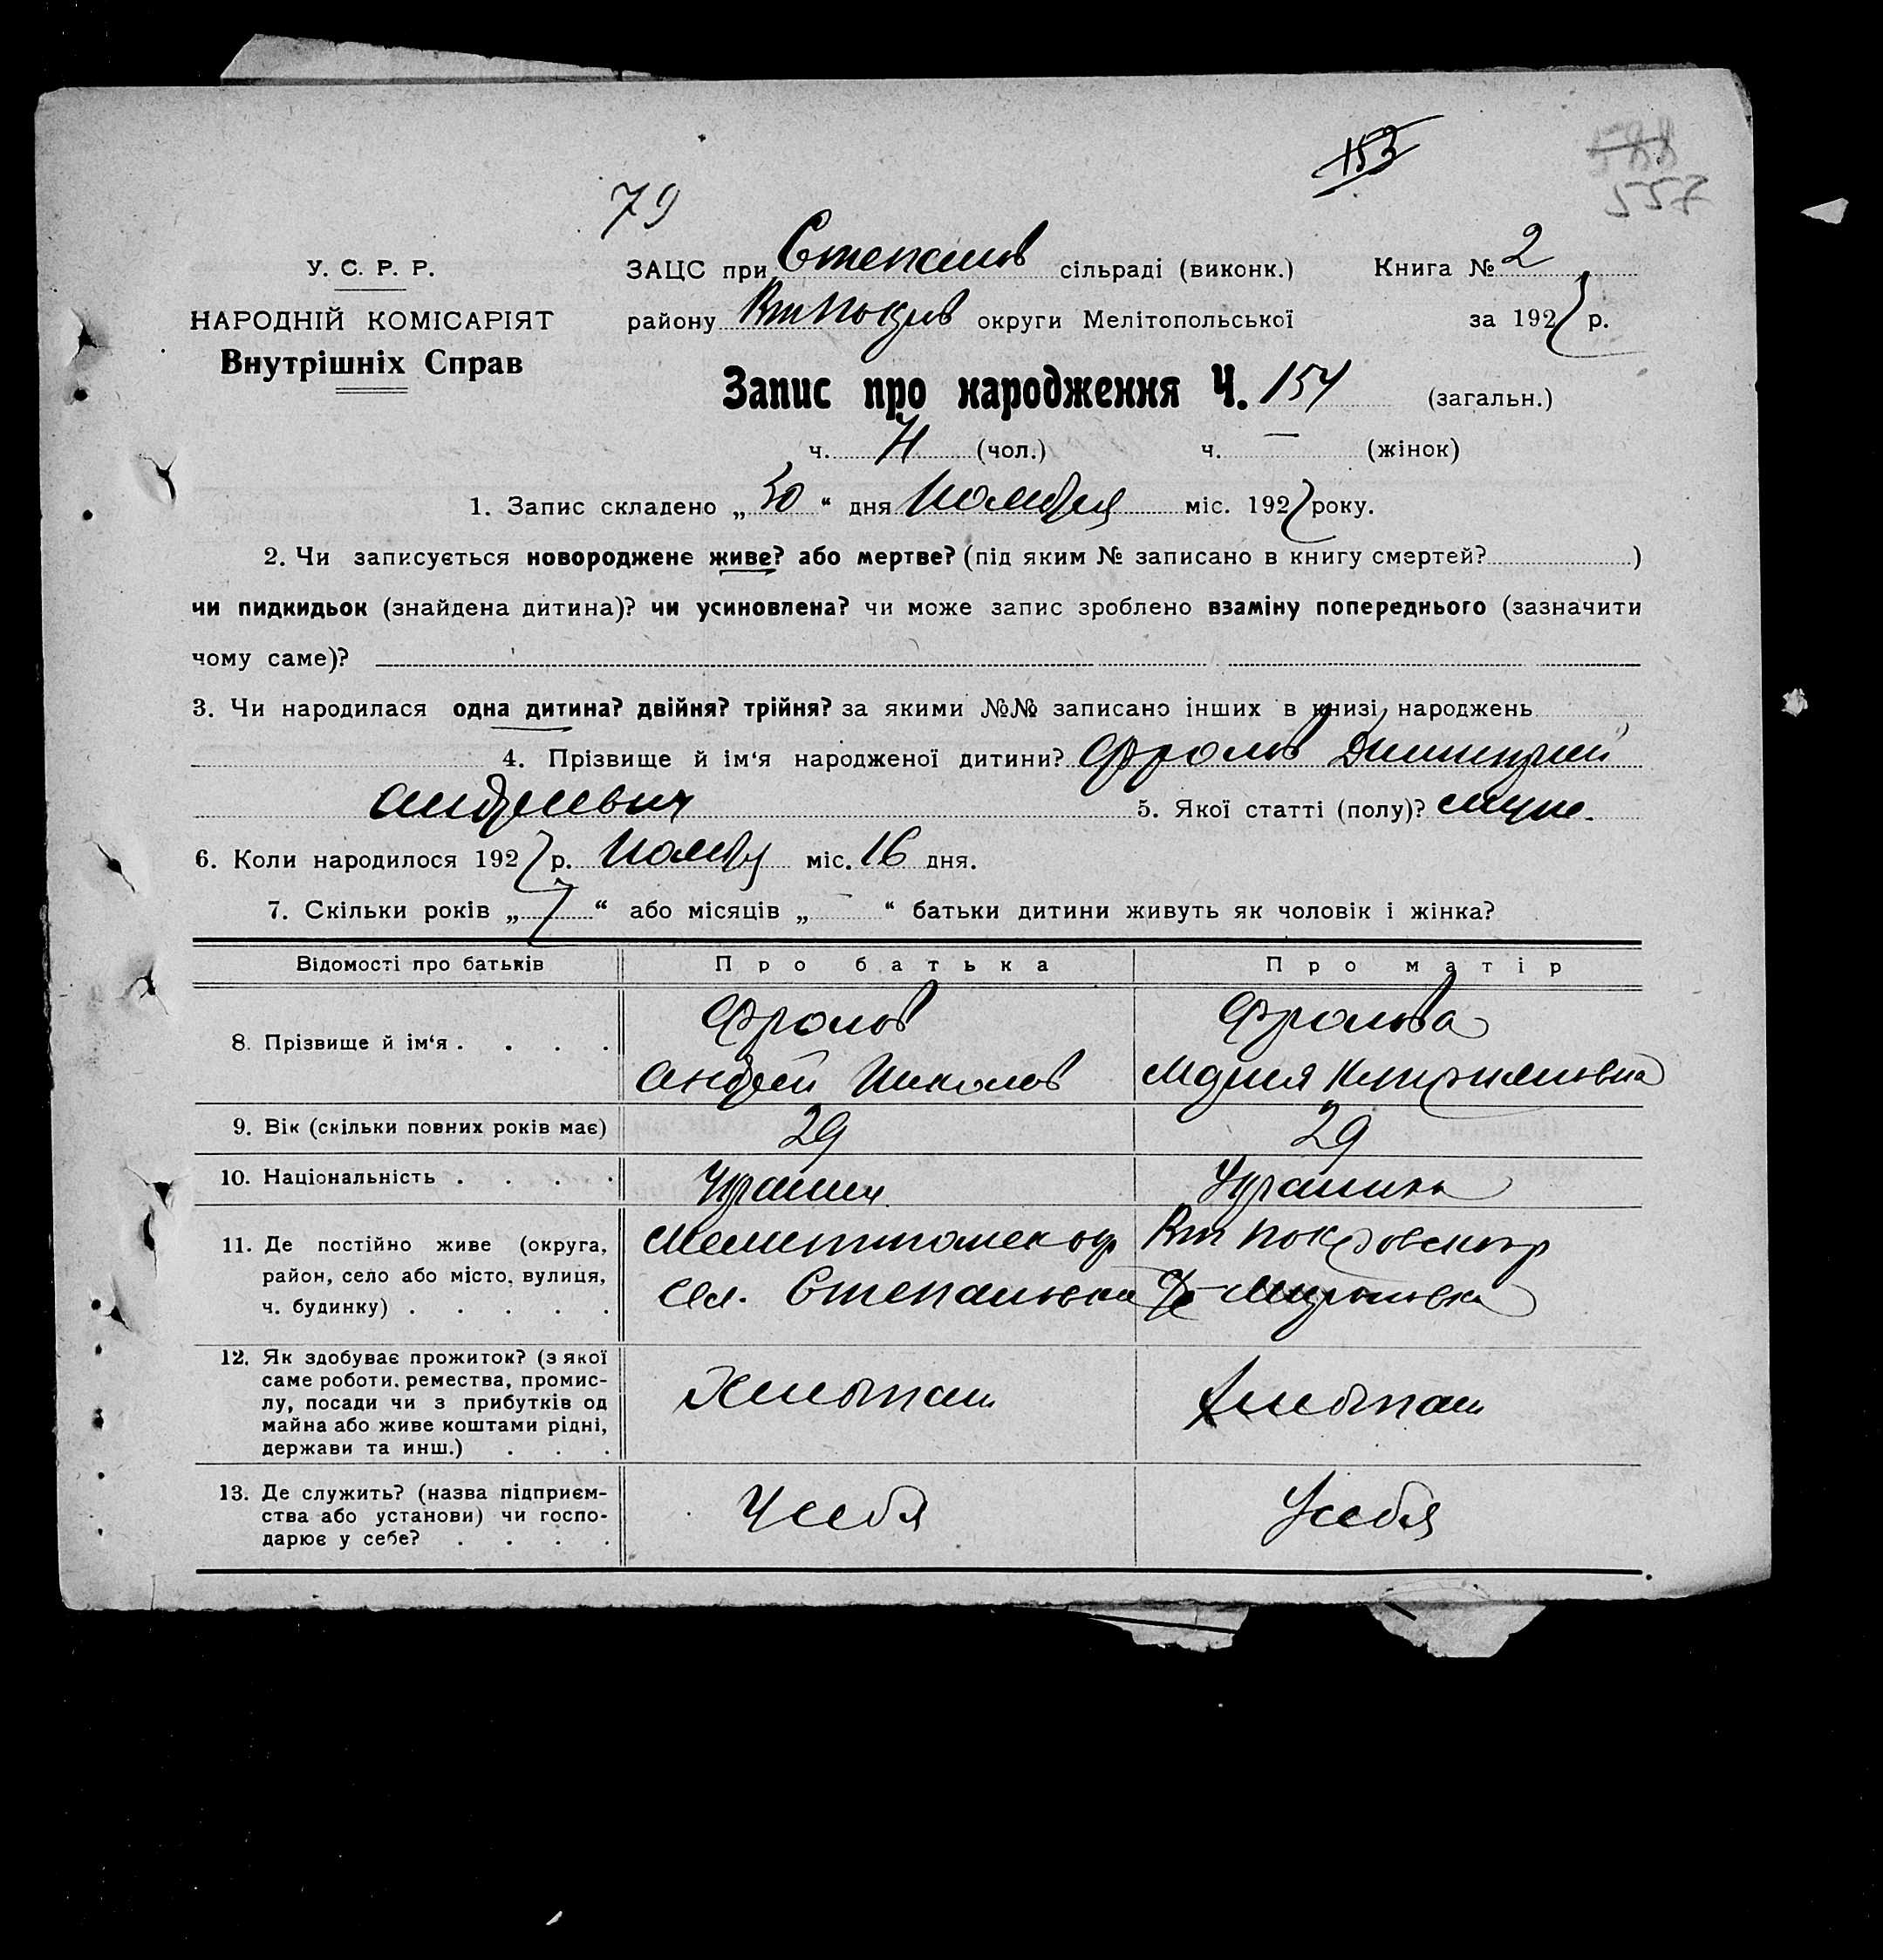 153
588
557
79
У. С. Р. Р.
НАРОДНІЙ КОМІСАРІЯТ
Внутрішніх Справ
ЗАЦС при Степанов сільраді (виконк.) Книга № 2
району Втпокров округи Мелітопольської за 1927 р.
Запис про народження Ч. 154 (загальн.)
ч. (чол.) ч. — (жінок)
1. Запис складено „ “ дня Ноября міс. 1927 року.
2. Чи записується новороджене живе? або мертве? (під яким № записано в книгу смертей? )
чи пидкидьок (знайдена дитина)? чи усиновлена? чи може запис зроблено взаміну попереднього (зазначити
чому саме)?
3. Чи народилася одна дитина? двійня? трійня? за якими №№ записано інших в книзі народжень
4. Прізвище й ім‘я народженої дитини? Фролов Димитрий
Андреевич 5. Якої статті (полу)? муже.
6. Коли народилося 1927 р. Ноябр міс. 16 дня.
7. Скільки років „ 7 “ або місяців „ — “ батьки дитини живуть як чоловік і жінка?
Відомості про батьків Про батька Про матір
8. Прізвище й ім‘я . . . . Фролов Фролова
Андрей Николов Мария
9. Вік (скільки повних років має) 29 29
10. Національність . . . . Украинц Украинк
11. Де постійно живе (округа, Мелитополск окр Вт Покровск р
район, село або місто, вулиця, Сел. Степановка
ч. будинку) . . . . .
12. Як здобуває прожиток? (з якої
саме роботи, ремества, промис-
лу, посади чи з прибутків од Хлебпаш Хлебпаш
майна або живе коштами рідні,
держави та инш.) . . .
13. Де служить? (назва підприєм-
ства або установи) чи госпо- У себя У себя
дарює у себе? . . . .